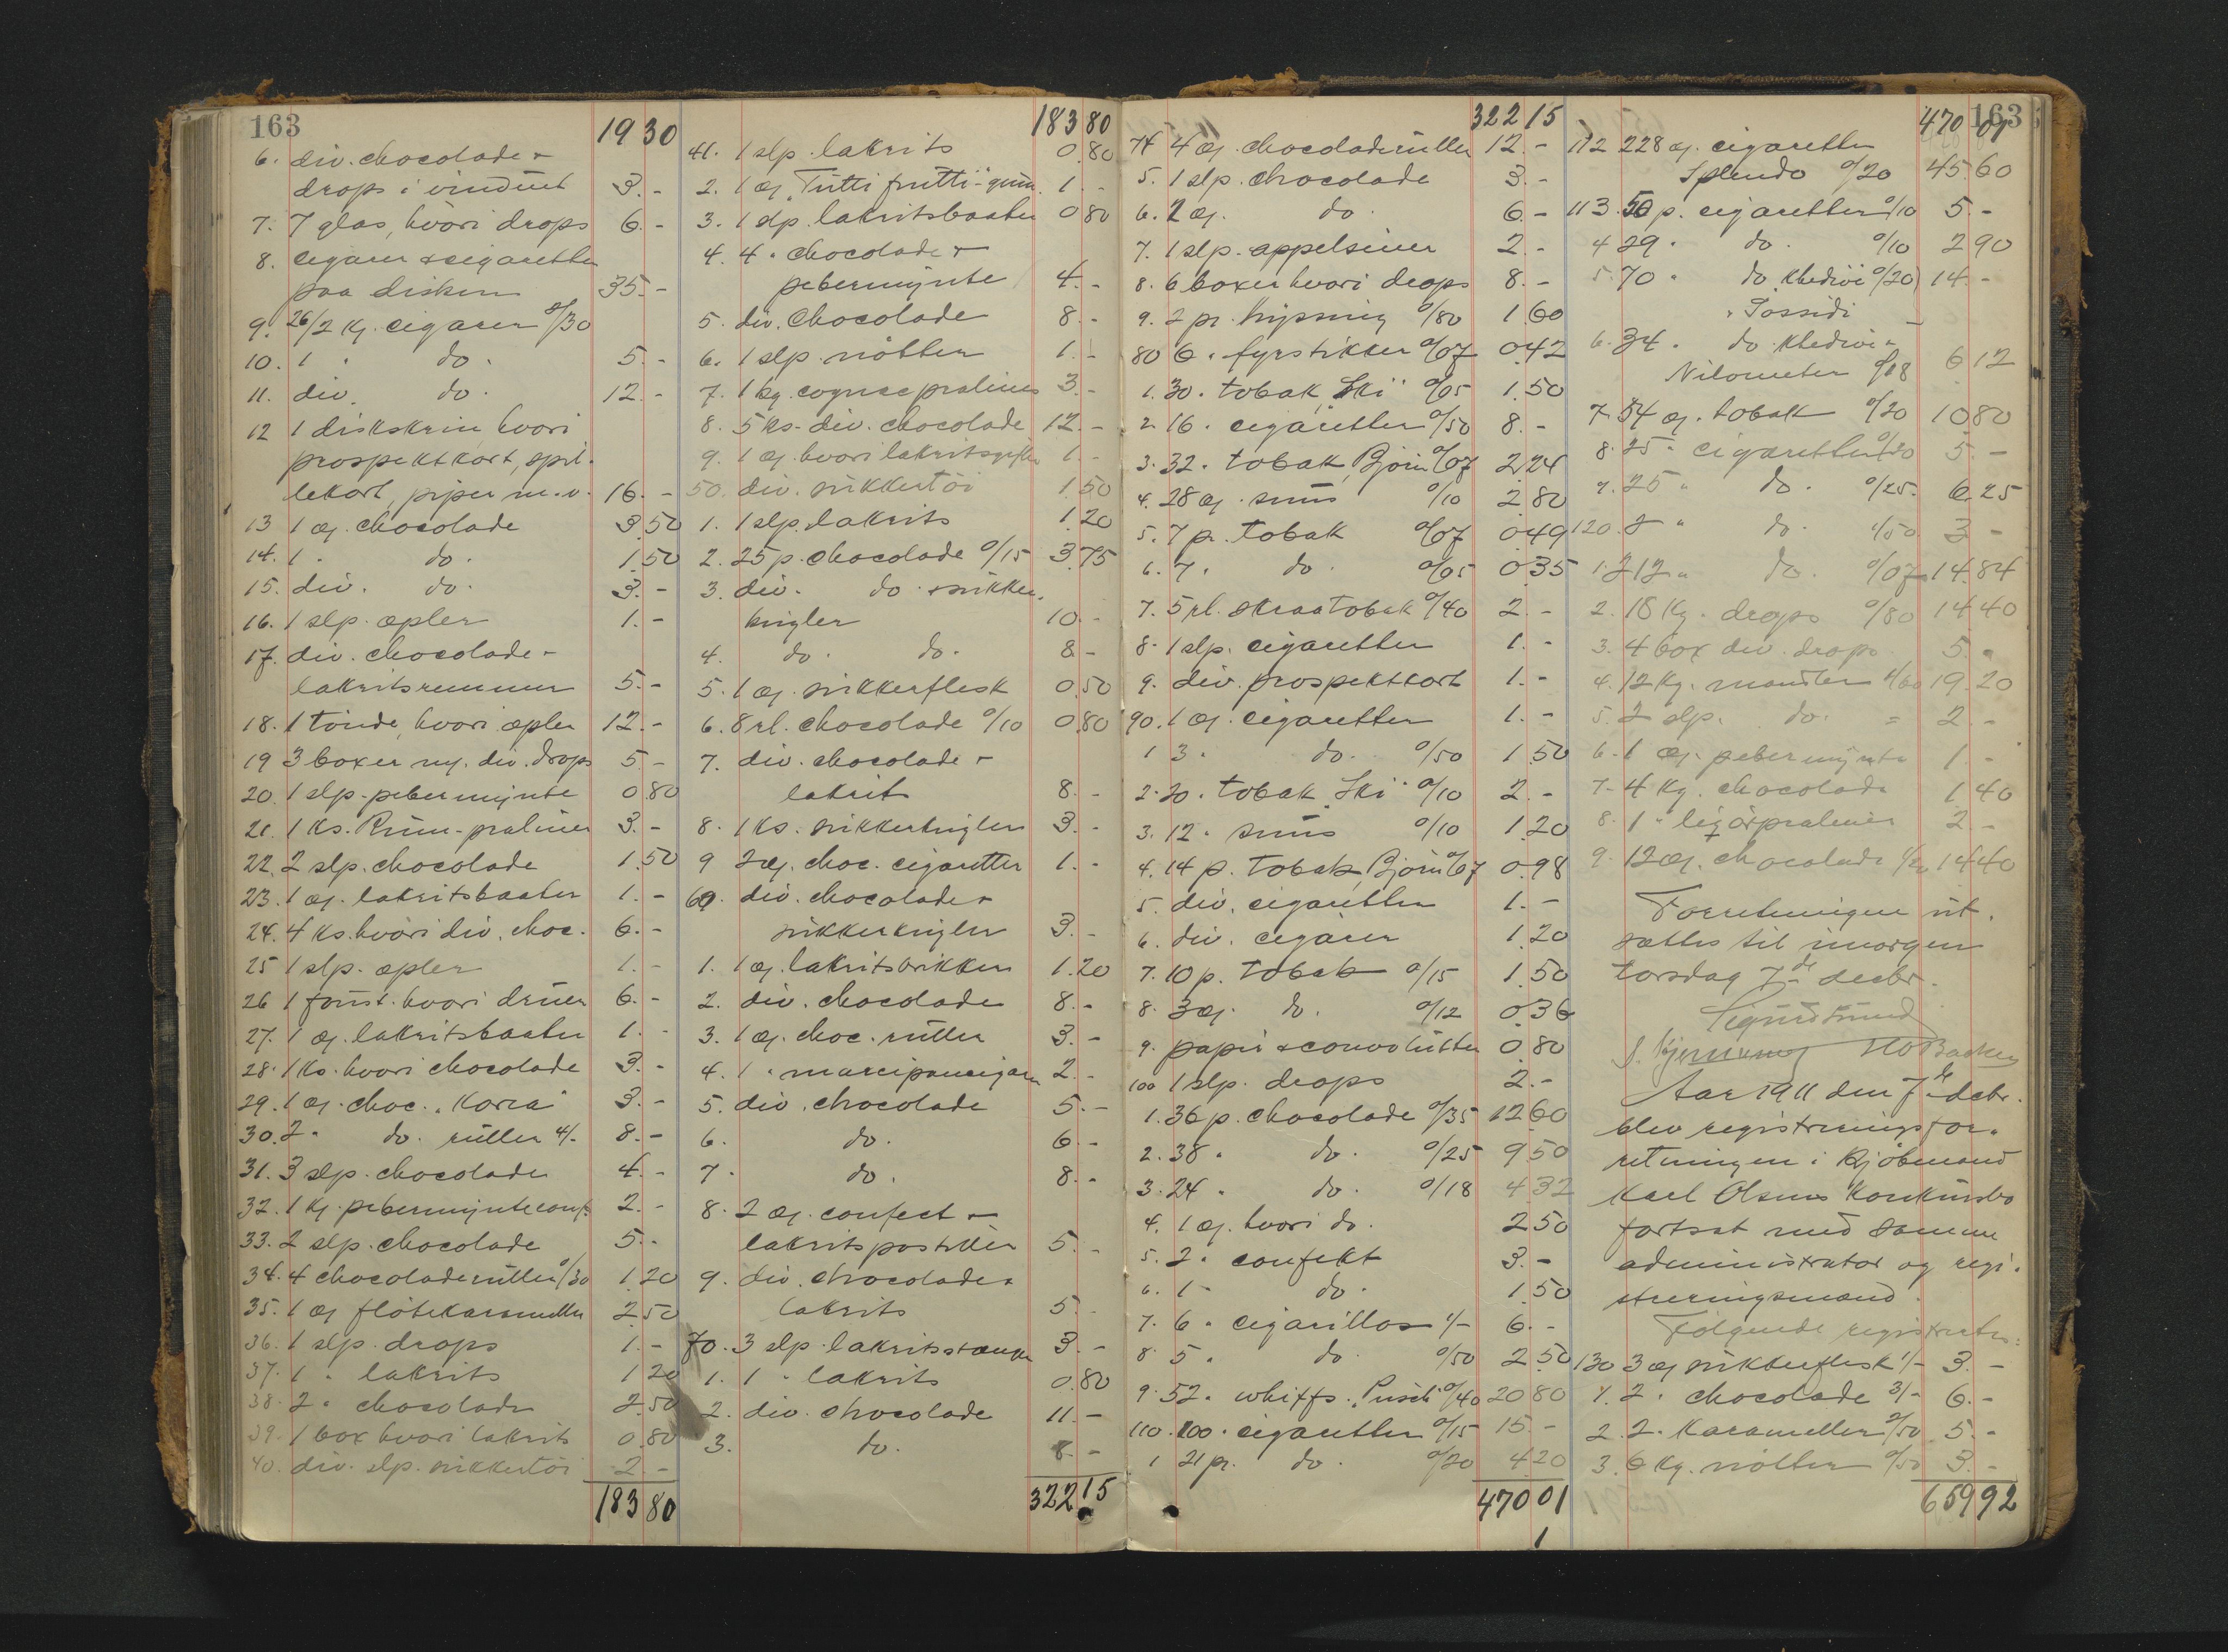 163
19 30
6. div. chocolade +
drops i vinduet 3.-
7. 7 glas, hvori drops 6.-
8. cigarer & cigaretter
paa disken 35.-
9. 26/2 kg. cigarer %30
10. 1 " do. 5.-
11. div. do. 12.-
12 1 diskskrin hvori
prospektkort, spil-
lekort, piper m.v. 16.-
13 1 æ. chocolade 3.50
14. 1 " do. 1.50
15. div. do. 3.-
16. 1 slp. æpler 1.-
17. div. chocolade -
lakritsremmer 5.-
18. 1 tönde, hvori æpler 12.-
19 3 boxer m. div. drops 5.-
20. 1 slp. pebermynte 0.80
21. 1 ks. Rum-praliner 3.-
22. 2 slp. chocolade 1.50
23. 1 æ. lakritsbaater 1.-
24. 4 ks. hvori div. choc. 6.-
25 1 slp. æpler 1.-
26 1 fust. hvori druer 6.-
27. 1 æ. lakritsbaater 1.-
28. 1 ks. hvori chocolade 3.-
29. 1 æ. choc. "Korea" 3.-
30. 2 " do. ruller 4/- 8.-
31. 3 slp. chocolade 4.-
32. 1 kg. pebermynteconf. 2.-
33. 2 slp. chocolade 5.-
34. 4 chocoladeruller %30 1.20
35. 1 æ flötekarameller 2.50
36. 1 slp. drops 1.-
37. 1 " lakrits 1.20
38. 2 " chocolade 2.50
39. 1 box hvori lakrits 0.80
40. div. slp. sukkertöi 2.-
183 80
183 80
41. 1 slp. lakrits 0.80
2. 1 æ "Tutti frutti"-gum. 1.-
3. 1 slp. lakritsbaater 0.80
4. 4 " chocolade +
pebermynte 4.-
5. div. chocolade 8.-
6. 1 slp. nötter 1.-
7. 1 kg. cognacpralines 3.-
8. 5 ks. div. chocolade 12.-
9. 1 æ. hvori 1.-
50. div. sukkertöi 1.50
1. 1 slp. lakrits 1.20
2. 25 p. chocolade %15 3.75
3. div. do. + sukker-
kugler 10.-
4. do. do. 8.-
5. 1 æ. sukkerflesk 0.50
6. 8 rl. chocolade %10 0.80
7. div. chocolade +
lakrit 8.-
8. 1 ks. sukkerkugler 3.-
9 2 æ. choc. cigaretter 1.-
60. div. chocolade +
sukkerkugler 3.-
1. 1 æ. lakritsbrikker 1.20
2. div. chocolade 8.-
3. 1 æ. choc. ruller 3.-
4. 1 " marcipancigarer 2.-
5. div. chocolade 5.-
6. do. 6.-
7. do. 8.-
8. 2 æ. confect +
lakritspastiller 5.-
9. div. chocolade +
lakrits 5.-
70. 3 slp. lakritsstænger 3.-
1. 1 " lakrits 0.80
2. div. chocolade 11.-
3. do. 8.-
322 15
322 15
74 4 æ. chocoladeruller 12.-
5. 1 slp. chocolade 3.-
6. 2 æ. do. 6.-
7. 1 slp. appelsiner 2.-
8. 6 boxer hvori drops 8.-
9. 2 pr. hyssing %80 1.60
80 6 " fyrstikker %07 0.42
1. 30 " tobak "Ski" %05 1.50
2. 16 " cigaretter %50 8.-
3. 32 " tobak, Björn %07 2.24
4. 28 æ. snus %10 2.80
5. 7 p. tobak %07 0.49
6. 7 " do. %05 0.35
7. 5 rl. skraatobak %40 2.-
8. 1 slp. cigaretter 1.-
9. div. prospektkort 1.-
90. 1 æ. cigaretter 1.-
1 3 " do. %50 1.50
2. 20 " tobak "Ski" %10 2.-
3. 12 " snus %10 1.20
4. 14 p. tobak, Björn %07 0.98
5. div. cigaretter 1.-
6. div. cigarer 1.20
7. 10 p. tobak %15 1.50
8. 3 æ. do. %12 0.36
9. papir & convolutter 0.80
100 1 slp. drops 2.-
1. 36 p. chocolade %35 12.60
2. 38 " do. %25 9.50
3. 24 " do. %18 4.32
4. 1 æ. hvori do. 2.50
5. 2 " confekt 3.-
6. 1 " do. 1.50
7. 6 " cigarillos 1/- 6.-
8. 5 " do. %50 2.50
9. 52 " whiffs "Pusch" %40 20.80
110. 100 " cigaretter %15 15.-
1 21 pr. do. %20 4.20
470 01
1
470 01
163
112 228 æ. cigaretter
Splendo %20 45.60
113. 50 p. cigaretter %10 5.-
4 29 " do. %10 2.90
5. 70 " do. Khedive %20 14.-
" Tossidi
6. 34 " do. Khedive -
Nilometer %18 6.12
7. 54 æ. tobak %20 10.80
8. 25 " cigaretter %20 5.-
9. 25 " do. %25 6.25
120. do. %50 3.-
1. 212 " do. %07 14.84
2. 18 kg. drops %80 14.40
3. 4 box div. drops 5.-
4. 12 kg. mandler 1/60 19.20
5. 2 slp. do. = 2.-
6. 1 æ. pebermynte 1.-
7. 4 kg. chocolade 1.40
8. 1 " liqörpraliner 2.-
9. 12 æ. chocolade 1/20 14.40
Forretningen ut-
sættes til imorgen
torsdag 7de decbr.
Aar 1911 den 7de decbr.
blev registreringsfor-
retningen i Kjöbmand
Karl Olsens konkursbo
fortsat med samme
administrator og regi-
streringsmænd.
Fölgende registrertes:
130 3 æ sukkerflesk 1/- 3.-
1. 2 " chocolade 3/- 6.-
2. 2 " karameller %50 5.-
3. 6 kg. nötter %50 3.-
659 92